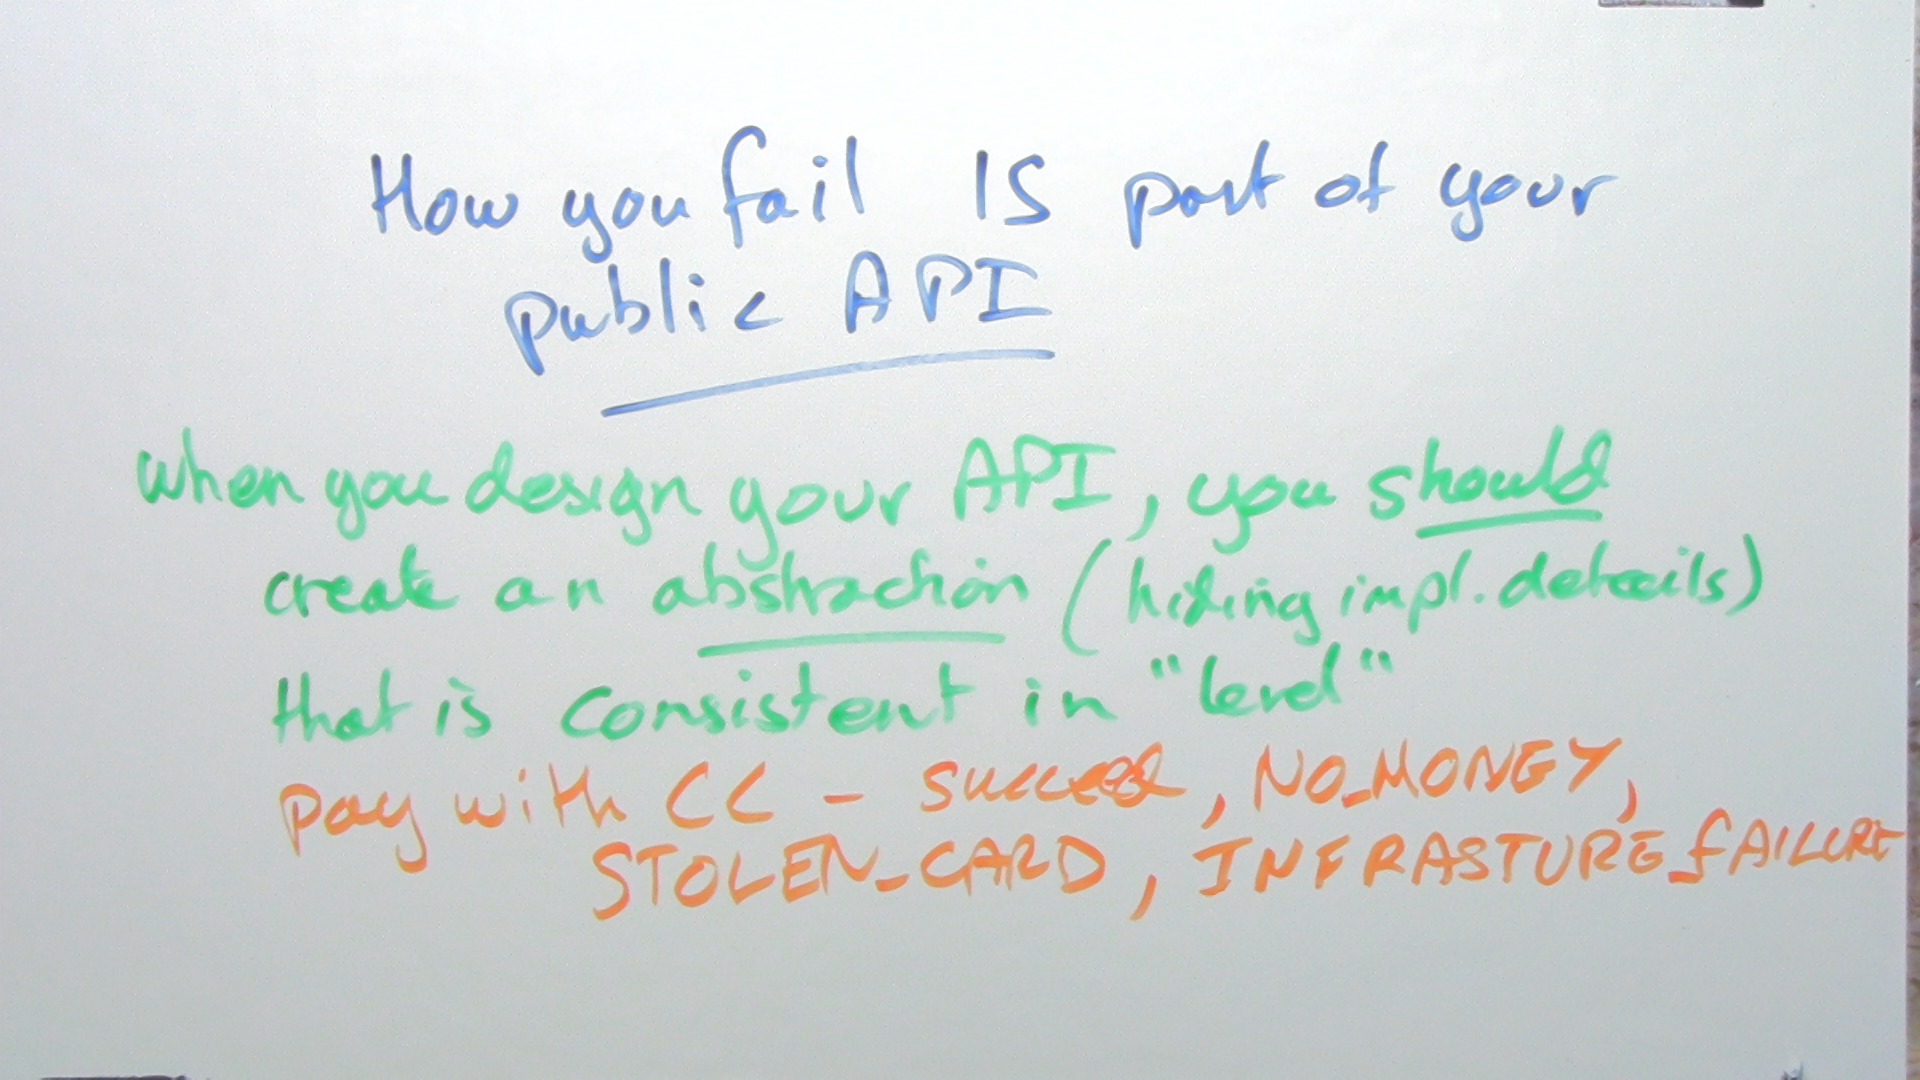 How you fail IS part of your
public API
when you design your API, you should
create an abstraction (hiding impl. details)
that is consistent in "level"
pay with CC - succeed, NO_MONEY,
STOLEN_CARD, INFRASTURE_FAILURE